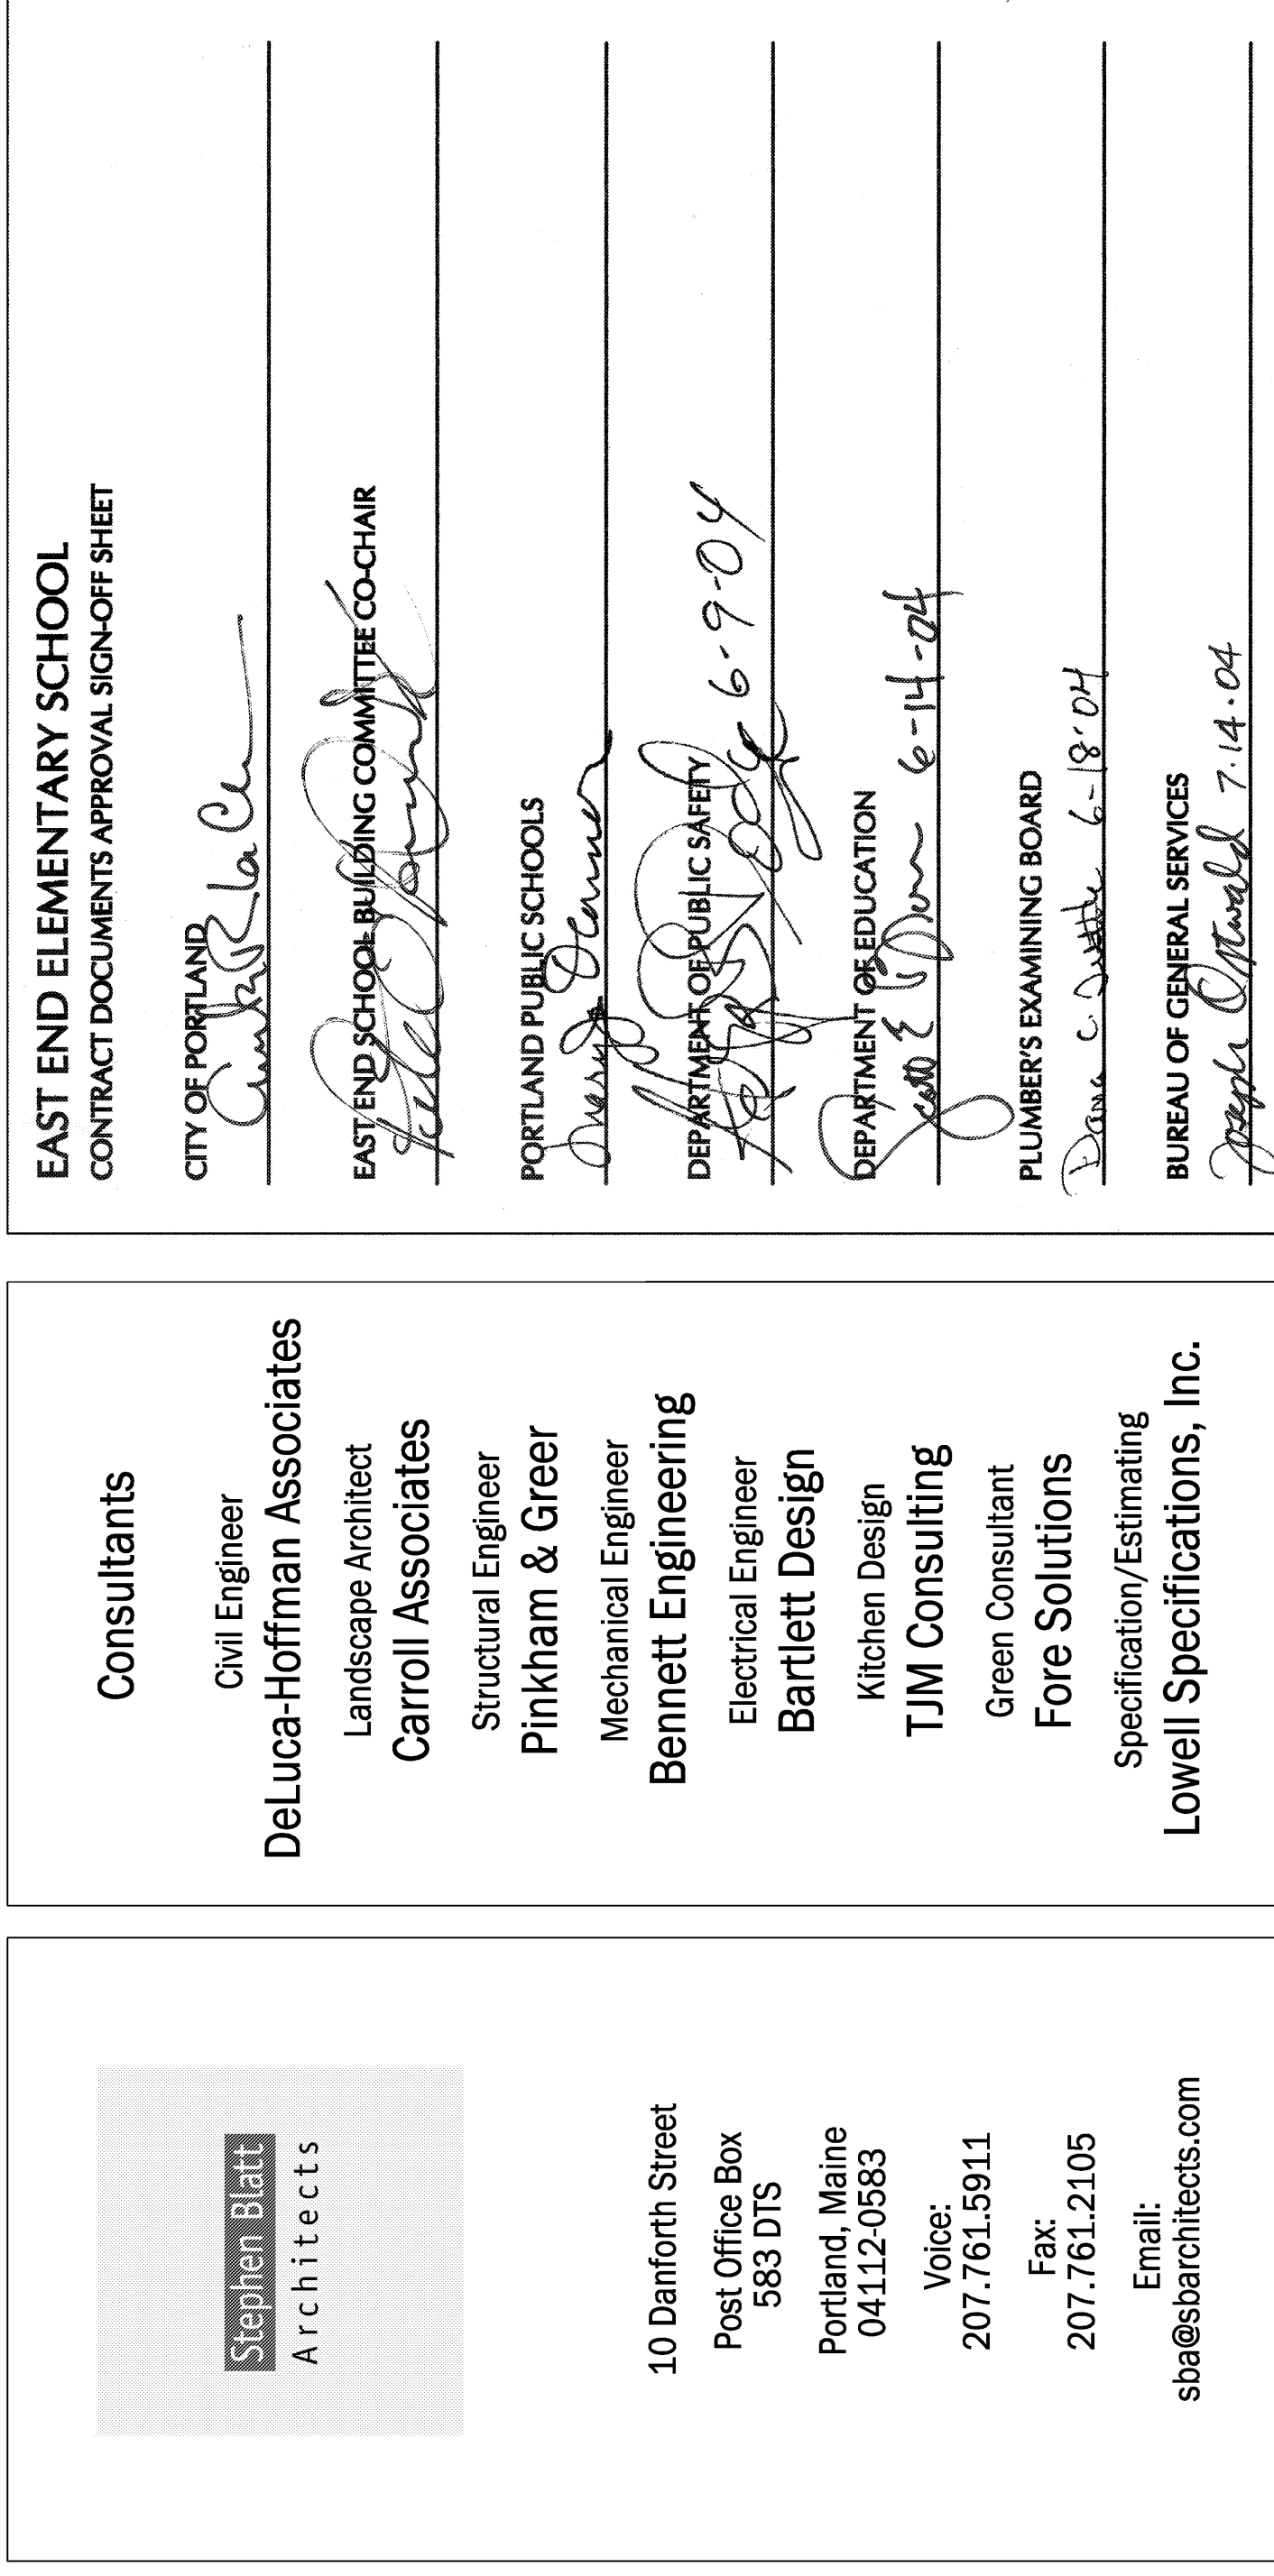 Stephen Blatt
Architects
10 Danforth Street
Post Office Box
583 DTS
Portland, Maine
04112-0583
Voice:
207.761.5911
Fax:
207.761.2105
Email:
sba@sbarchitects.com
Consultants
Civil Engineer
DeLuca-Hoffman Associates
Landscape Architect
Carroll Associates
Structural Engineer
Pinkham & Greer
Mechanical Engineer
Bennett Engineering
Electrical Engineer
Bartlett Design
Kitchen Design
TJM Consulting
Green Consultant
Fore Solutions
Specification/Estimating
Lowell Specifications, Inc.
EAST END ELEMENTARY SCHOOL
CONTRACT DOCUMENTS APPROVAL SIGN-OFF SHEET
CITY OF PORTLAND
EAST END SCHOOL BUILDING COMMITTEE CO-CHAIR
PORTLAND PUBLIC SCHOOLS
DEPARTMENT OF PUBLIC SAFETY
6-9-04
DEPARTMENT OF EDUCATION
Scott E 6-14-04
PLUMBER'S EXAMINING BOARD
Dana C. 6-18-04
BUREAU OF GENERAL SERVICES
Joseph 7.14.04